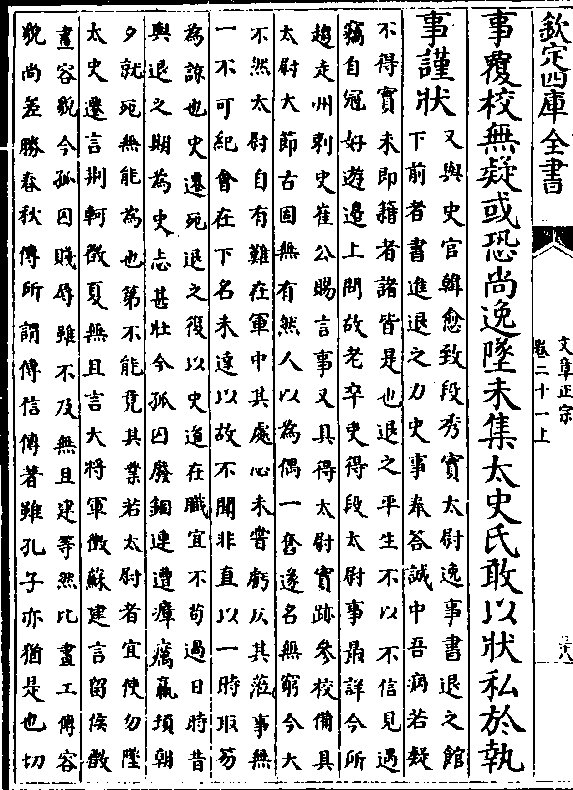 欽定四庫全書
文章正宗
卷二十一上
事覆校無疑或恐尚逸墜未集太史氏敢以狀私於執
事謹狀
又與史官韓愈致段秀實太尉逸事書退之館
下前者書進退之力史事奉答誠中吾病若疑
不得實未即籍者諸皆是也退之平生不以不信見遇
竊自冠好遊邊上問故老卒吏得段太尉事最詳今所
趨走州刺史崔公賜言事又具得太尉實跡參校備具
太尉大節古固無有然人以為偶一奮遂名無窮今大
不然太尉自有難在軍中其處心未嘗虧以其蒞事無
一不可紀會在下名未達以故不聞非直以一時取笏
為諒也史遷死退之復以史道在職宜不苟過日時昔
與退之期為史志甚壯今孤囚廢錮連遭瘴癘羸頓朝
夕就死無能為也第不能竟其業若太尉者宜使勿墜
太史遷言荆軻徴夏無且言大將軍徴蘇建言留侯徴
畫容貌今孤囚賤辱雖不及無且建等然比畫工傳容
貌尚差勝春秋傳所謂傳信傳著雖孔子亦猶是也切